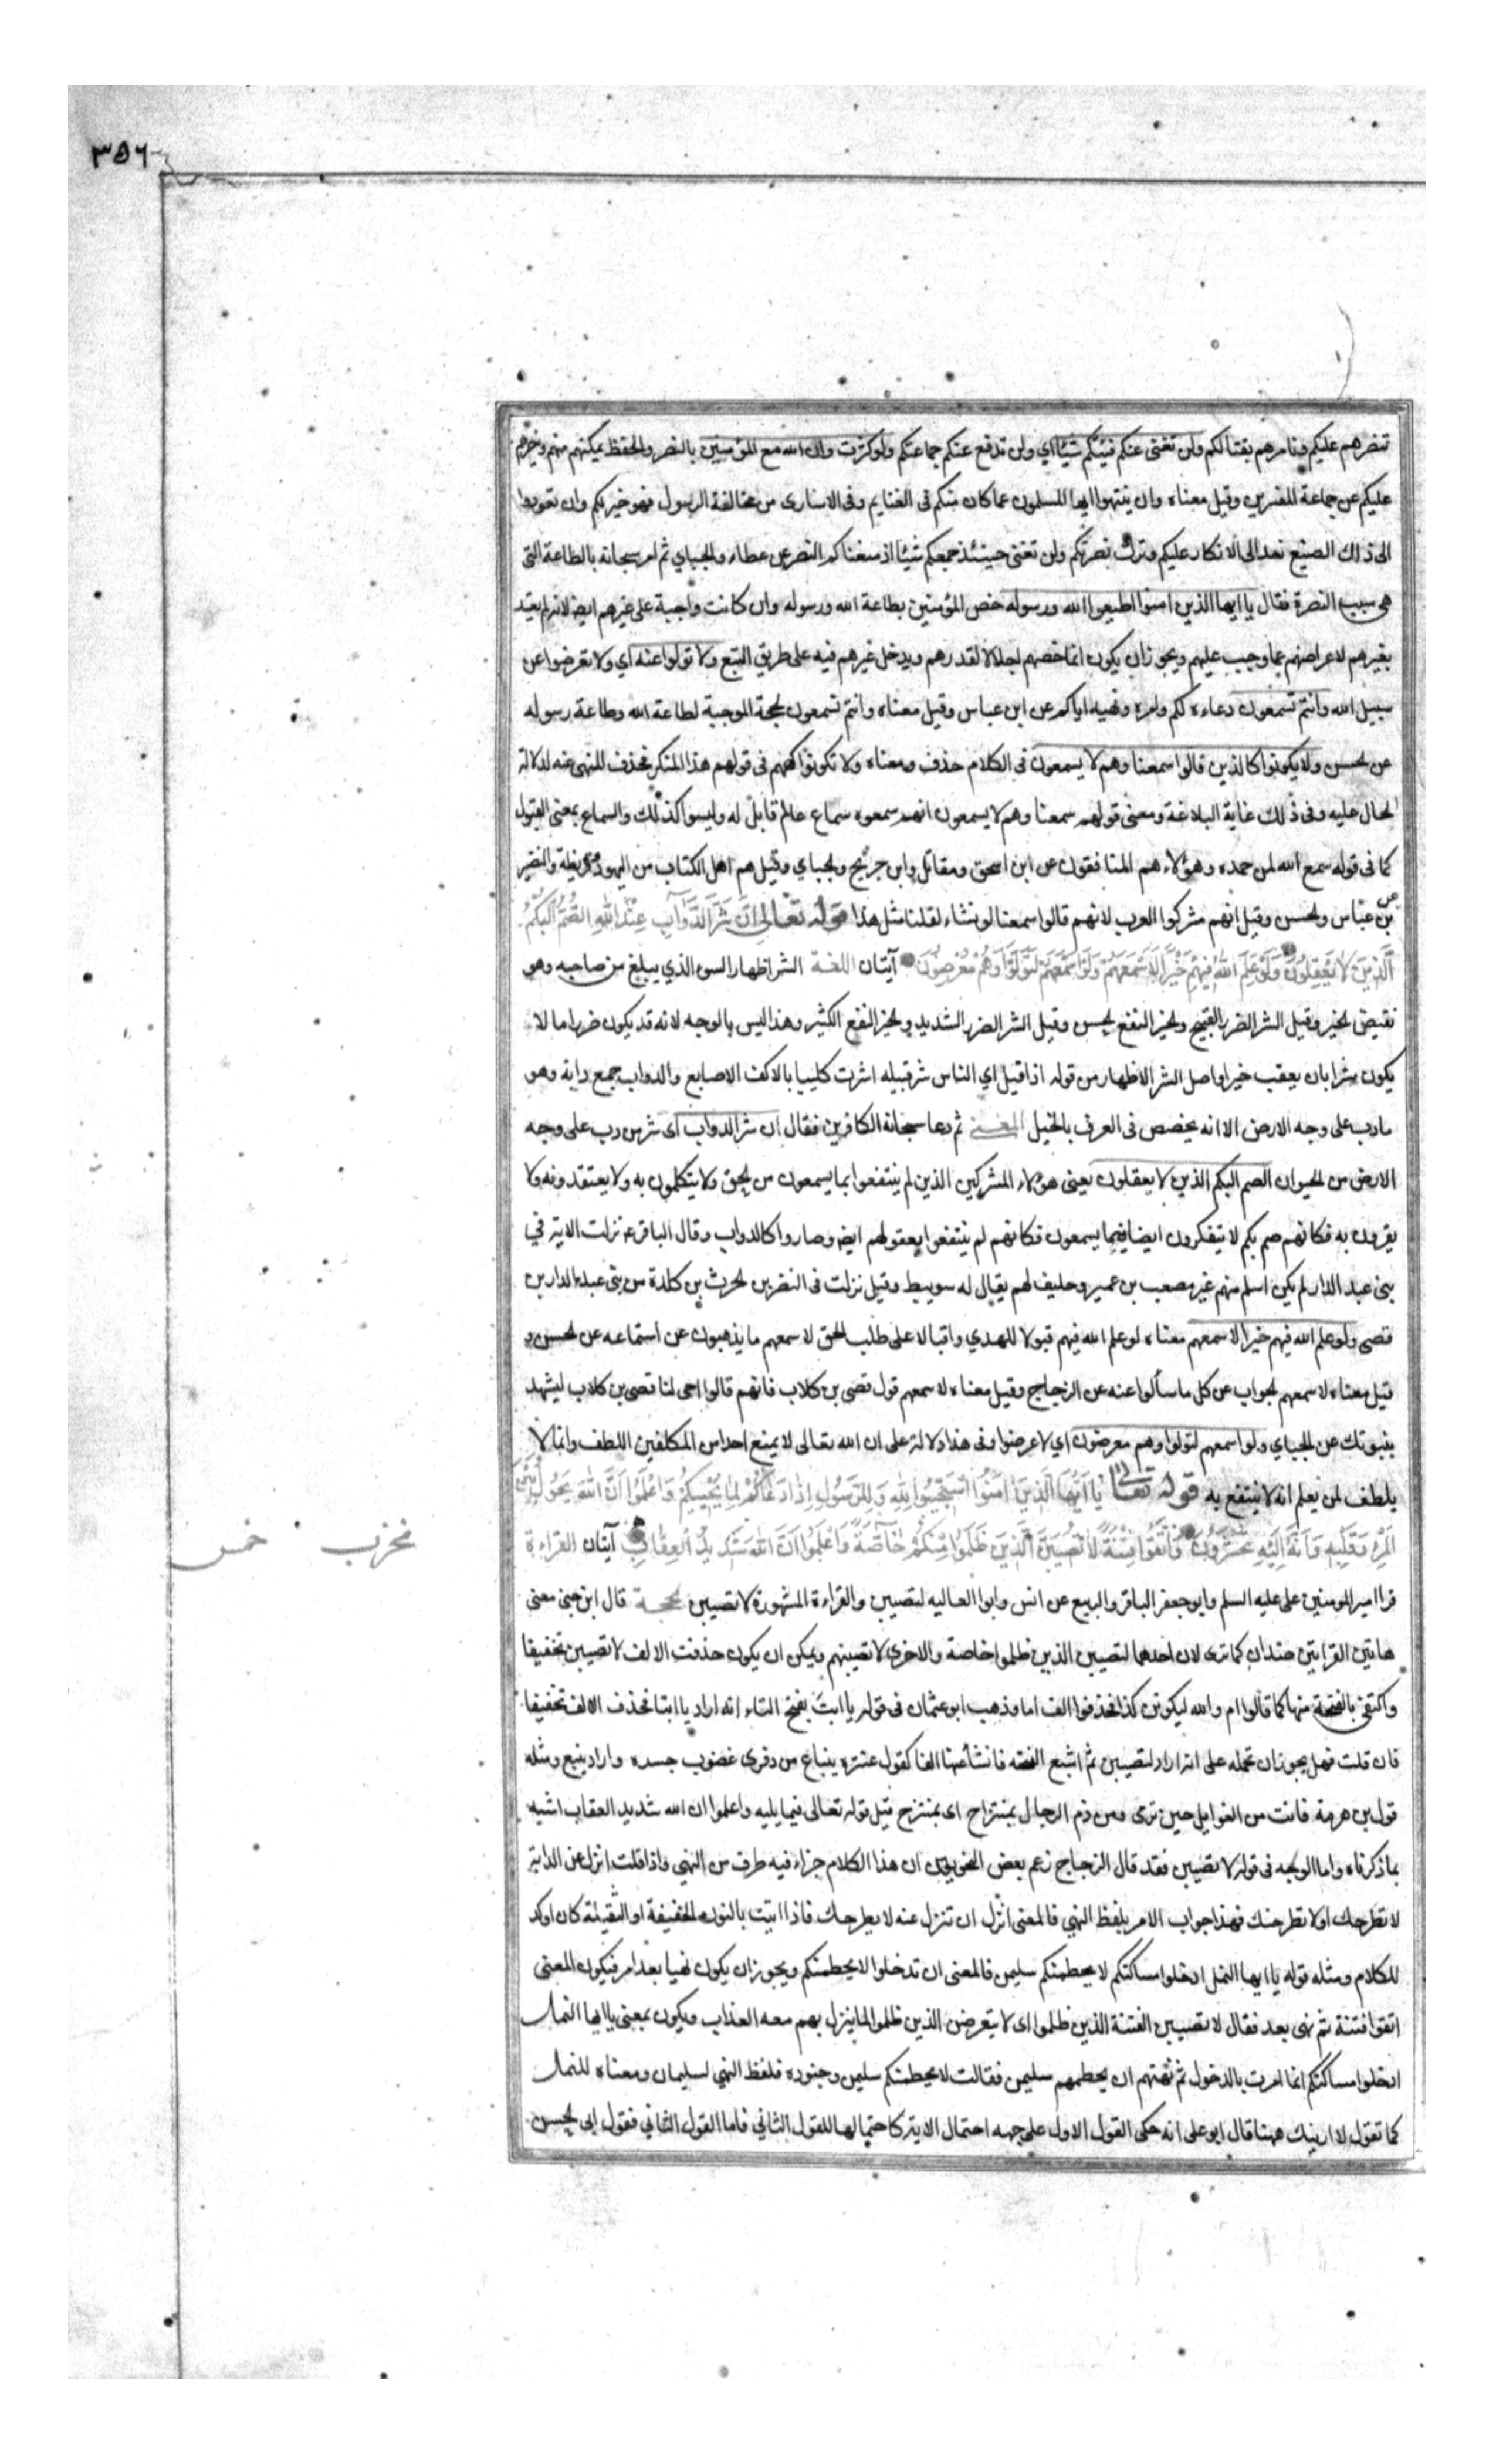 ٣٥٦
ننصرهم عليكم ونامرهم بقتالكم ولن تغنى عنكم فئتكم شيئا اي ولن تدفع عنكم جماعتكم ولو كثرت وان الله مع المؤمنين بالنصر والحفظ يمكنهم منهم
عليكم عن جماعة المفسرين وقيل معناه وان ينتهوا ايها المسلمون عما كان منكم في الغنايم وفى الاسارى من مخالفة الرسول فهو خير لكم وان تعودوا
الى ذلك الصنيع نعد الى الانكار عليكم وترك نصرتكم ولن تغنى حينئذ جمعكم شيئا اذ منعناكم النصر عن عطاء والجباي ثم امر سبحانه بالطاعة التى
هى سبب النصرة فقال يا ايها الذين امنوا اطيعوا الله ورسوله خص المؤمنين بطاعة الله ورسوله وان كانت واجبة على غيرهم ايضا لانه لم يعتد
بغيرهم لاعراضهم عما وجب عليهم ويجوز ان يكون انما خصهم اجلالا لقدرهم ويدخل غيرهم فيه على طريق التبع ولا تولوا عنه اي ولا تعرضوا عن
سبيل الله وانتم تسمعون دعاءه لكم وامره ونهيه اياكم عن ابن عباس وقيل معناه وانتم تسمعون الحجة الموجبة لطاعة الله وطاعة رسوله
عن الحسن ولا يكونوا كالذين قالوا سمعنا وهم لا يسمعون فى الكلام حذف ومعناه ولا تكونوا كهم فى قولهم هذا المنكر فحذف المنهى عنه لدلالة
الحال عليه وفى ذلك غاية البلاغة ومعنى قولهم سمعنا وهم لا يسمعون انهم سمعوه سماع عالم قابل له وليسوا كذلك والسماع بمعنى القبول
كما فى قوله سمع الله لمن حمده وهؤلاء هم المنافقون عن ابن اسحق ومقاتل وابن جريج والجباي وقيل هم اهل الكتاب من اليهود وقريظة والنضير
عن بن عباس والحسن وقيل انهم مشركوا العرب لانهم قالوا سمعنا لو نشاء لقلنا مثل هذا قوله تعالى اِنَّ شَرَّ الدَّوَآبِّ عِنْدَ اللهِ الصُّمُّ الْبُكْمُ
الَّذِينَ لَا يَعْقِلُونَ وَلَوْ عَلِمَ اللهُ فِيهِمْ خَيْرًا لَاَسْمَعَهُمْ وَلَوْ اَسْمَعَهُمْ لَتَوَلَّوْا وَهُمْ مُعْرِضُونَ آيتان اللغة الشر اظهار السوء الذي يبلغ من صاحبه وهو
نقيض الخير وقيل الشر الضرر القبيح والخير النفع الحسن وقيل الشر الضرر الشديد والخير النفع الكثير وهذا ليس بالوجه لانه قد يكون ضررا ما لا
يكون شرا بان يعقب خيرا واصل الشر الاظهار من قوله اذا قيل اي الناس شر قبيله اشرت كليبا بالاكف الاصابع والدواب جمع دابة وهو
ما دب على وجه الارض الا انه يخصص فى العرف بالخيل المعنى ثم دعا سبحانه الكافرين فقال ان شر الدواب اى شر من دب على وجه
الارض من الحيوان الصم البكم الذين لا يعقلون يعنى هؤلاء المشركين الذين لم ينتفعوا بما يسمعون من الحق ولا يتكلمون به ولا يعتقدونه ولا
يقرون به فكانهم صم بكم لا يتفكرون ايضا فيما يسمعون فكانهم لم ينتفعوا بعقولهم ايضا وصاروا كالدواب وقال الباقر ع نزلت الاية في
بنى عبد الدار لم يكن اسلم منهم غير مصعب بن عمير وحليف لهم يقال له سويبط وقيل نزلت فى النضر بن الحرث بن كلدة من بنى عبد الدار بن
قصى ولو علم الله فيهم خيرا لاسمعهم معناه لو علم الله فيهم قبولا للهدي واقبالا على طلب الحق لاسمعهم ما يذهبون عن استماعه عن الحسن و
قيل معناه لاسمعهم الجواب عن كل ما سألوا عنه عن الزجاج وقيل معناه لاسمعهم قول قصى بن كلاب فانهم قالوا احى لنا قصى بن كلاب ليشهد
بنبوتك عن الجباي ولو اسمعهم لتولوا وهم معرضون اي لاعرضوا وفى هذا دلالة على ان الله تعالى لا يمنع احدا من المكلفين اللطف وانما لا
يلطف لمن يعلم انه لا ينتفع به قوله تعالى يَا اَيُّهَا الَّذِينَ اٰمَنُوا اسْتَجِيبُوا لِلّٰهِ وَلِلرَّسُولِ اِذَا دَعَاكُمْ لِمَا يُحْيِيكُمْ وَاعْلَمُوا اَنَّ اللهَ يَحُولُ بَيْنَ
الْمَرْءِ وَقَلْبِهِ وَاَنَّهُ اِلَيْهِ تُحْشَرُونَ وَاتَّقُوا فِتْنَةً لَا تُصِيبَنَّ الَّذِينَ ظَلَمُوا مِنْكُمْ خَاصَّةً وَاعْلَمُوا اَنَّ اللهَ شَدِيدُ الْعِقَابِ آيتان القراءة
خمس
قرا امير المومنين على عليه السلم وابو جعفر الباقر والربيع عن انس وابوا العاليه لتصيبن والقراءة المشهورة لا تصيبن الحجة قال ابن جنى معنى
هاتين القرايتين ضدان كما ترى لان احدهما لتصيبن الذين ظلموا خاصة والاخرى لا تصيبنهم ويمكن ان يكون حذفت الالف لا تصيبن تخفيفا
واكتفى بالفتحة منها كما قالوا ام والله ليكونن كذا فحذفوا الف اما وذهب ابو عثمان فى قوله يا ابتَ بفتح التاء انه اراد يا ابتا فحذف الالف تخفيفا
فان قلت فهل يجوز ان تحمله على انه اراد لتصيبن ثم اشبع الفتحة فانشا عنها الفا كقول عنترة ينباع من دفرى غضوب جسره واراد ينبع ومثله
قول بن هرمة فانت من الغوايل حين ترى ومن ذم الرجال بمنتزاح اى بمنتزح قيل قوله تعالى فيما يليه واعلموا ان الله شديد العقاب اشبه
بما ذكرناه واما الوجه فى قوله لا تصيبن فقد قال الزجاج زعم بعض النحويين ان هذا الكلام جزاء فيه طرف من النهى واذا قلت انزل عن الدابة
لا تطرحك او لا تطرحنك فهذا جواب الامر بلفظ النهي فالمعنى انزل ان تنزل عنه لا يطرحك فاذا اتيت بالنون الخفيفة او الثقيلة كان اوكد
للكلام ومثله قوله يا ايها النمل ادخلوا مساكنكم لا يحطمنكم سليمن فالمعنى ان تدخلوا لا يحطمنكم ويجوز ان يكون نهيا بعد امر فيكون المعنى
اتقوا فتنة ثم نهى بعد فقال لا تصيبن الفتنة الذين ظلموا اى لا يتعرضن الذين ظلموا لما ينزل بهم معه العذاب ويكون بمعنى يا ايها النمل
ادخلوا مساكنكم انما امرت بالدخول ثم نهتهم ان يحطمهم سليمن فقالت لا يحطمنكم سليمن وجنوده فلفظ النهي لسليمان ومعناه للنمل
كما تقول لا ارينك ههنا قال ابو على انه حكى القول الاول على جهه احتمال الاية كاحتمالها للقول الثاني فاما القول الثاني فقول ابى الحسن